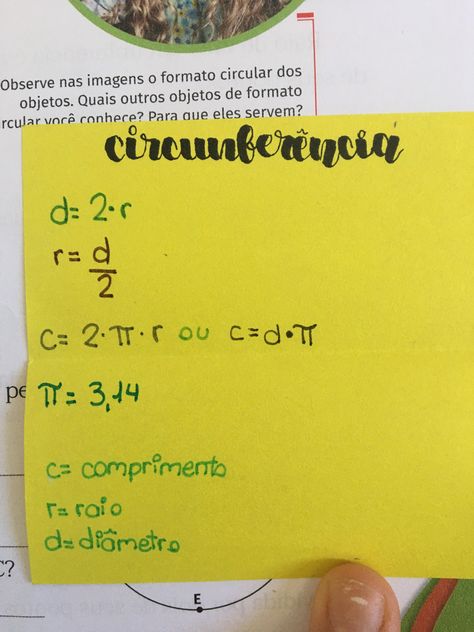 Observe nas imagens o formato circular dos
objetos. Quais outros objetos de formato
circular você conhece? Para que eles servem?
circunferência
d= 2·r
r= d/2
c= 2·π·r ou c=d·π
π= 3,14
c= comprimento
r= raio
d= diâmetro
E